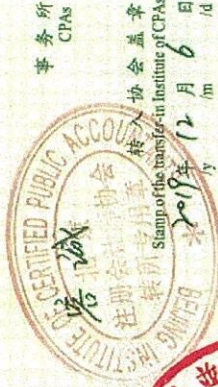 事务所
CPAs
转入协会盖章
Stamp of the transfer-in Institute of CPAs
2019年12月6日
/y /m /d
BEIJING INSTITUTE OF CERTIFIED PUBLIC ACCOU
注册会计师协会
转所专用章